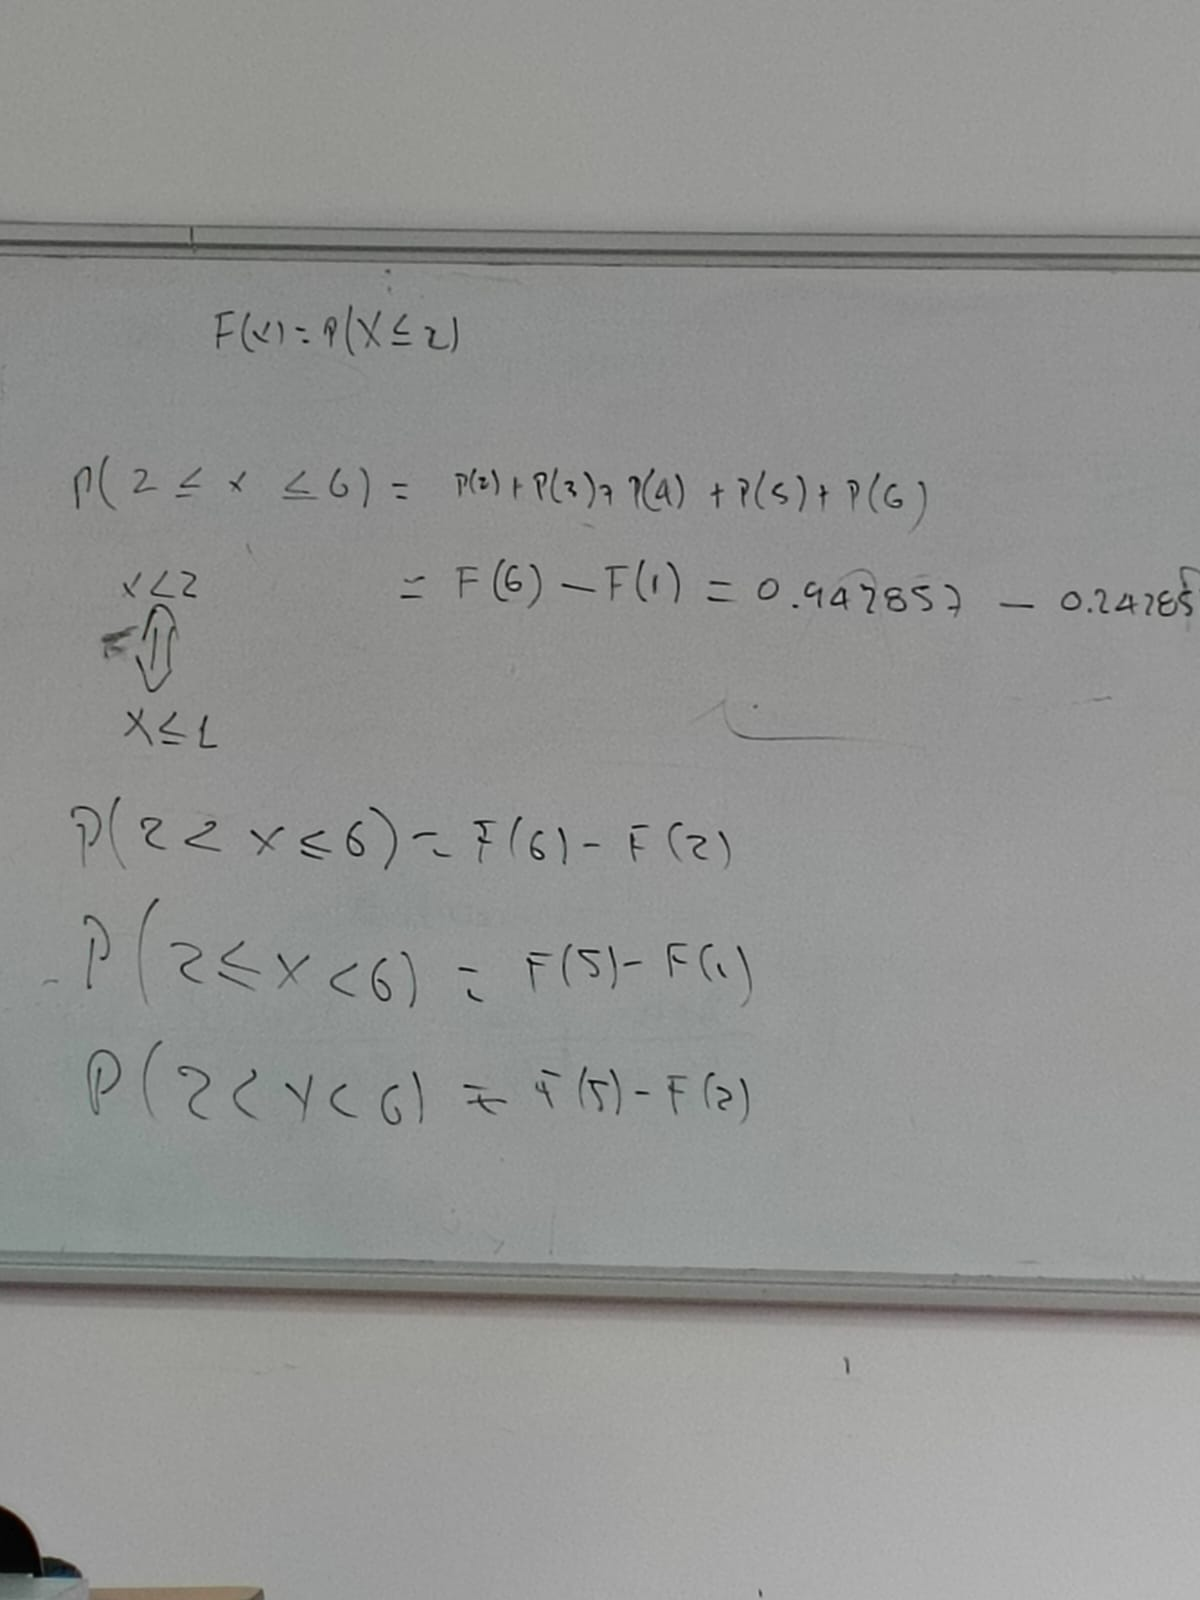 F(x) = P(X ≤ 2)
P(2 ≤ x ≤ 6) = P(2) + P(3) + P(4) + P(5) + P(6)
x < 2
= F(6) - F(1) = 0.942857 - 0.24285
X ≤ 1
P(2 < x ≤ 6) = F(6) - F(2)
P(2 ≤ x < 6) = F(5) - F(1)
P(2 < x < 6) = F(5) - F(2)